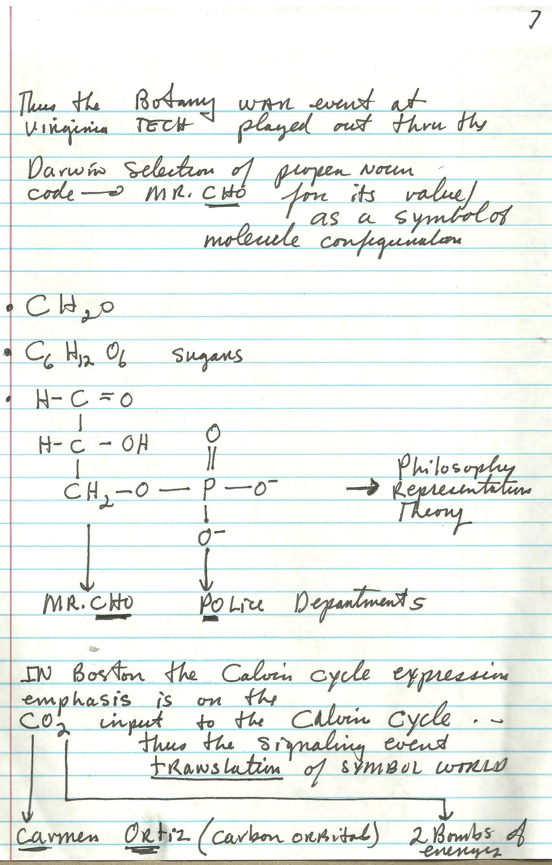 7
Thus the Botany WAR event at
Virginia TECH played out thru the
Darwin Selection of proper noun
code → MR. CHO for its value/
as a symbol of
molecule configuration
• CH₂O
• C₆ H₁₂ O₆ sugars
• H-C=O
H-C-OH O
CH₂-O-P-O⁻ → Philosophy
Representation
Theory
O⁻
MR. CHO POLice Departments
IN Boston the Calvin cycle expression
emphasis is on the
CO₂ input to the Calvin Cycle ..
thus the signaling event
tRANSlation of SYMBOL WORLD
Carmen ORtiz (carbon ORBital) 2 Bombs of
energies